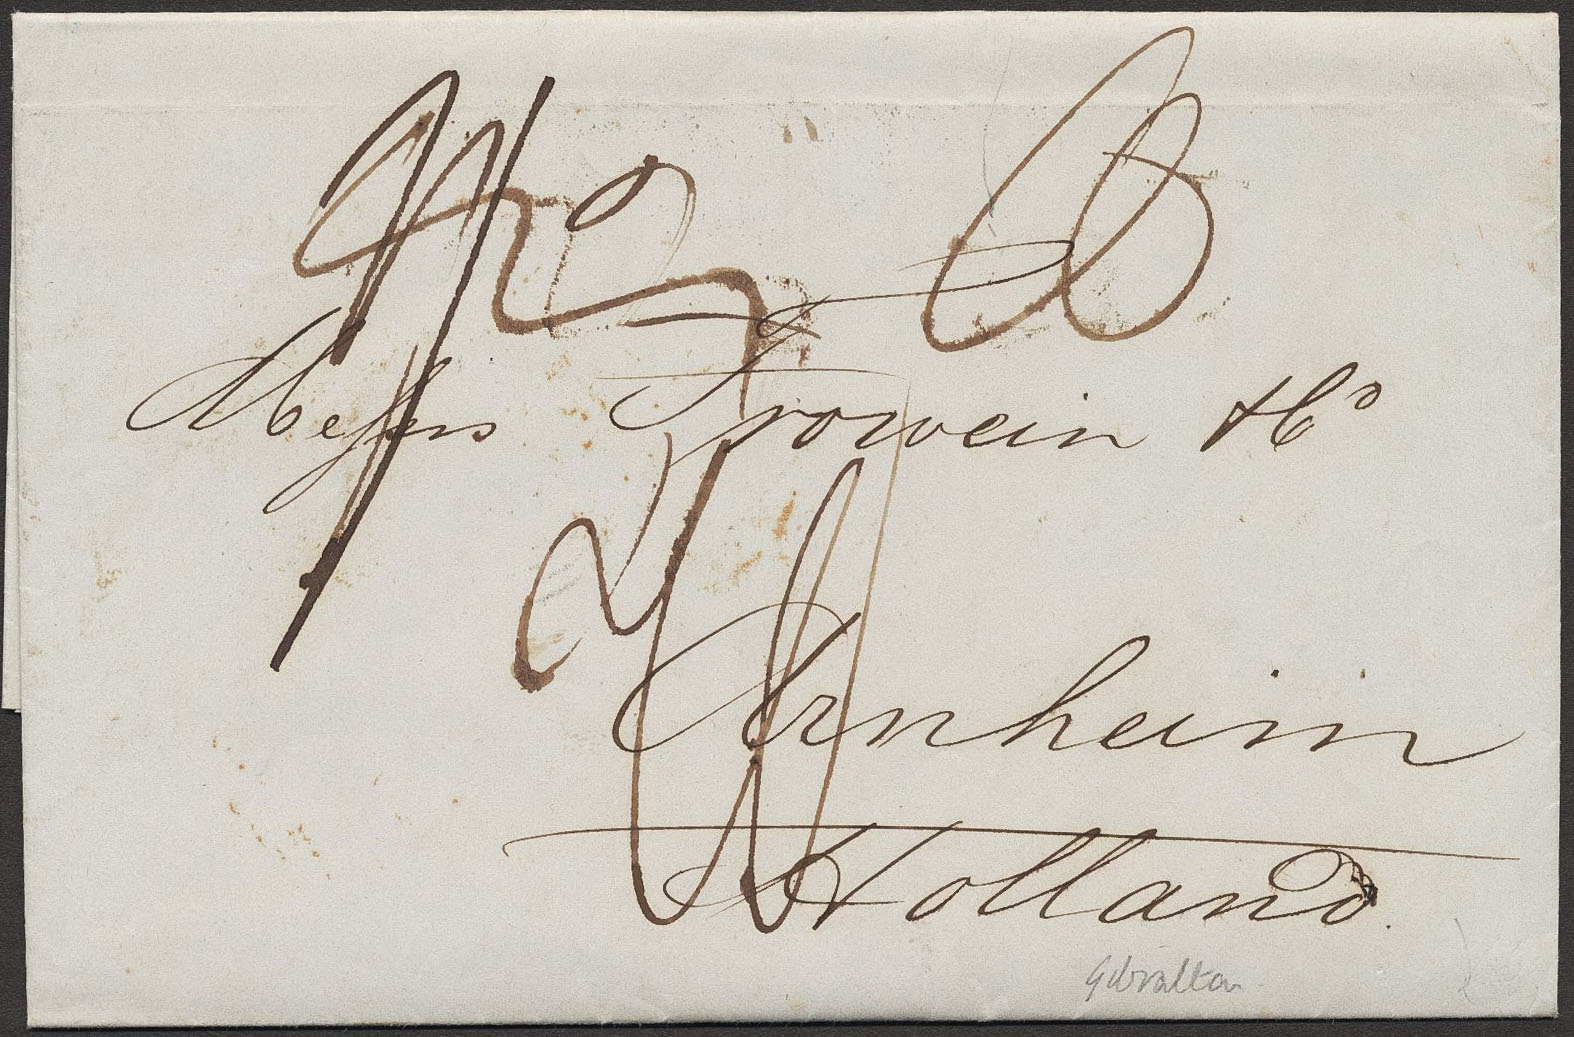 Messrs Frowein & Co
Arnheim
Holland.
Gibraltar